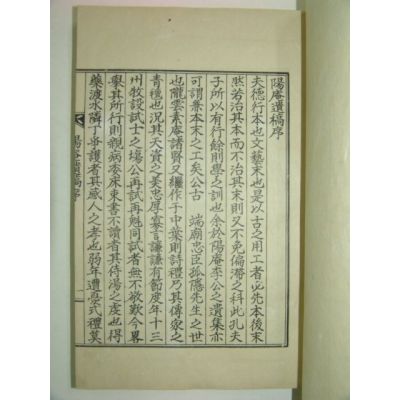 陽庵遺稿序
夫德行本也文藝末也是以古之用工者必先本後末
然若治其本而不治其末則又不免偏滯之科此孔夫
子所以有行餘則學之訓也余於陽庵李公之遺集亦
可謂兼本末之工矣公古 端廟忠臣孤隱先生之世
也隴雲素庵諸賢又繼作于中葉則詩禮乃其傳家之
青氈也況其天資之美忠厚寡言謙謙有節度年十三
州牧設試士之場公再試再魁同試者無不欽歎今畧
擧其所行則親病委床東書不讀者其侍湯之虔也得
藥渡水隣丁爭護者其感人之孝也弱年遭臺式禮莫
陽庵遺稿序
一